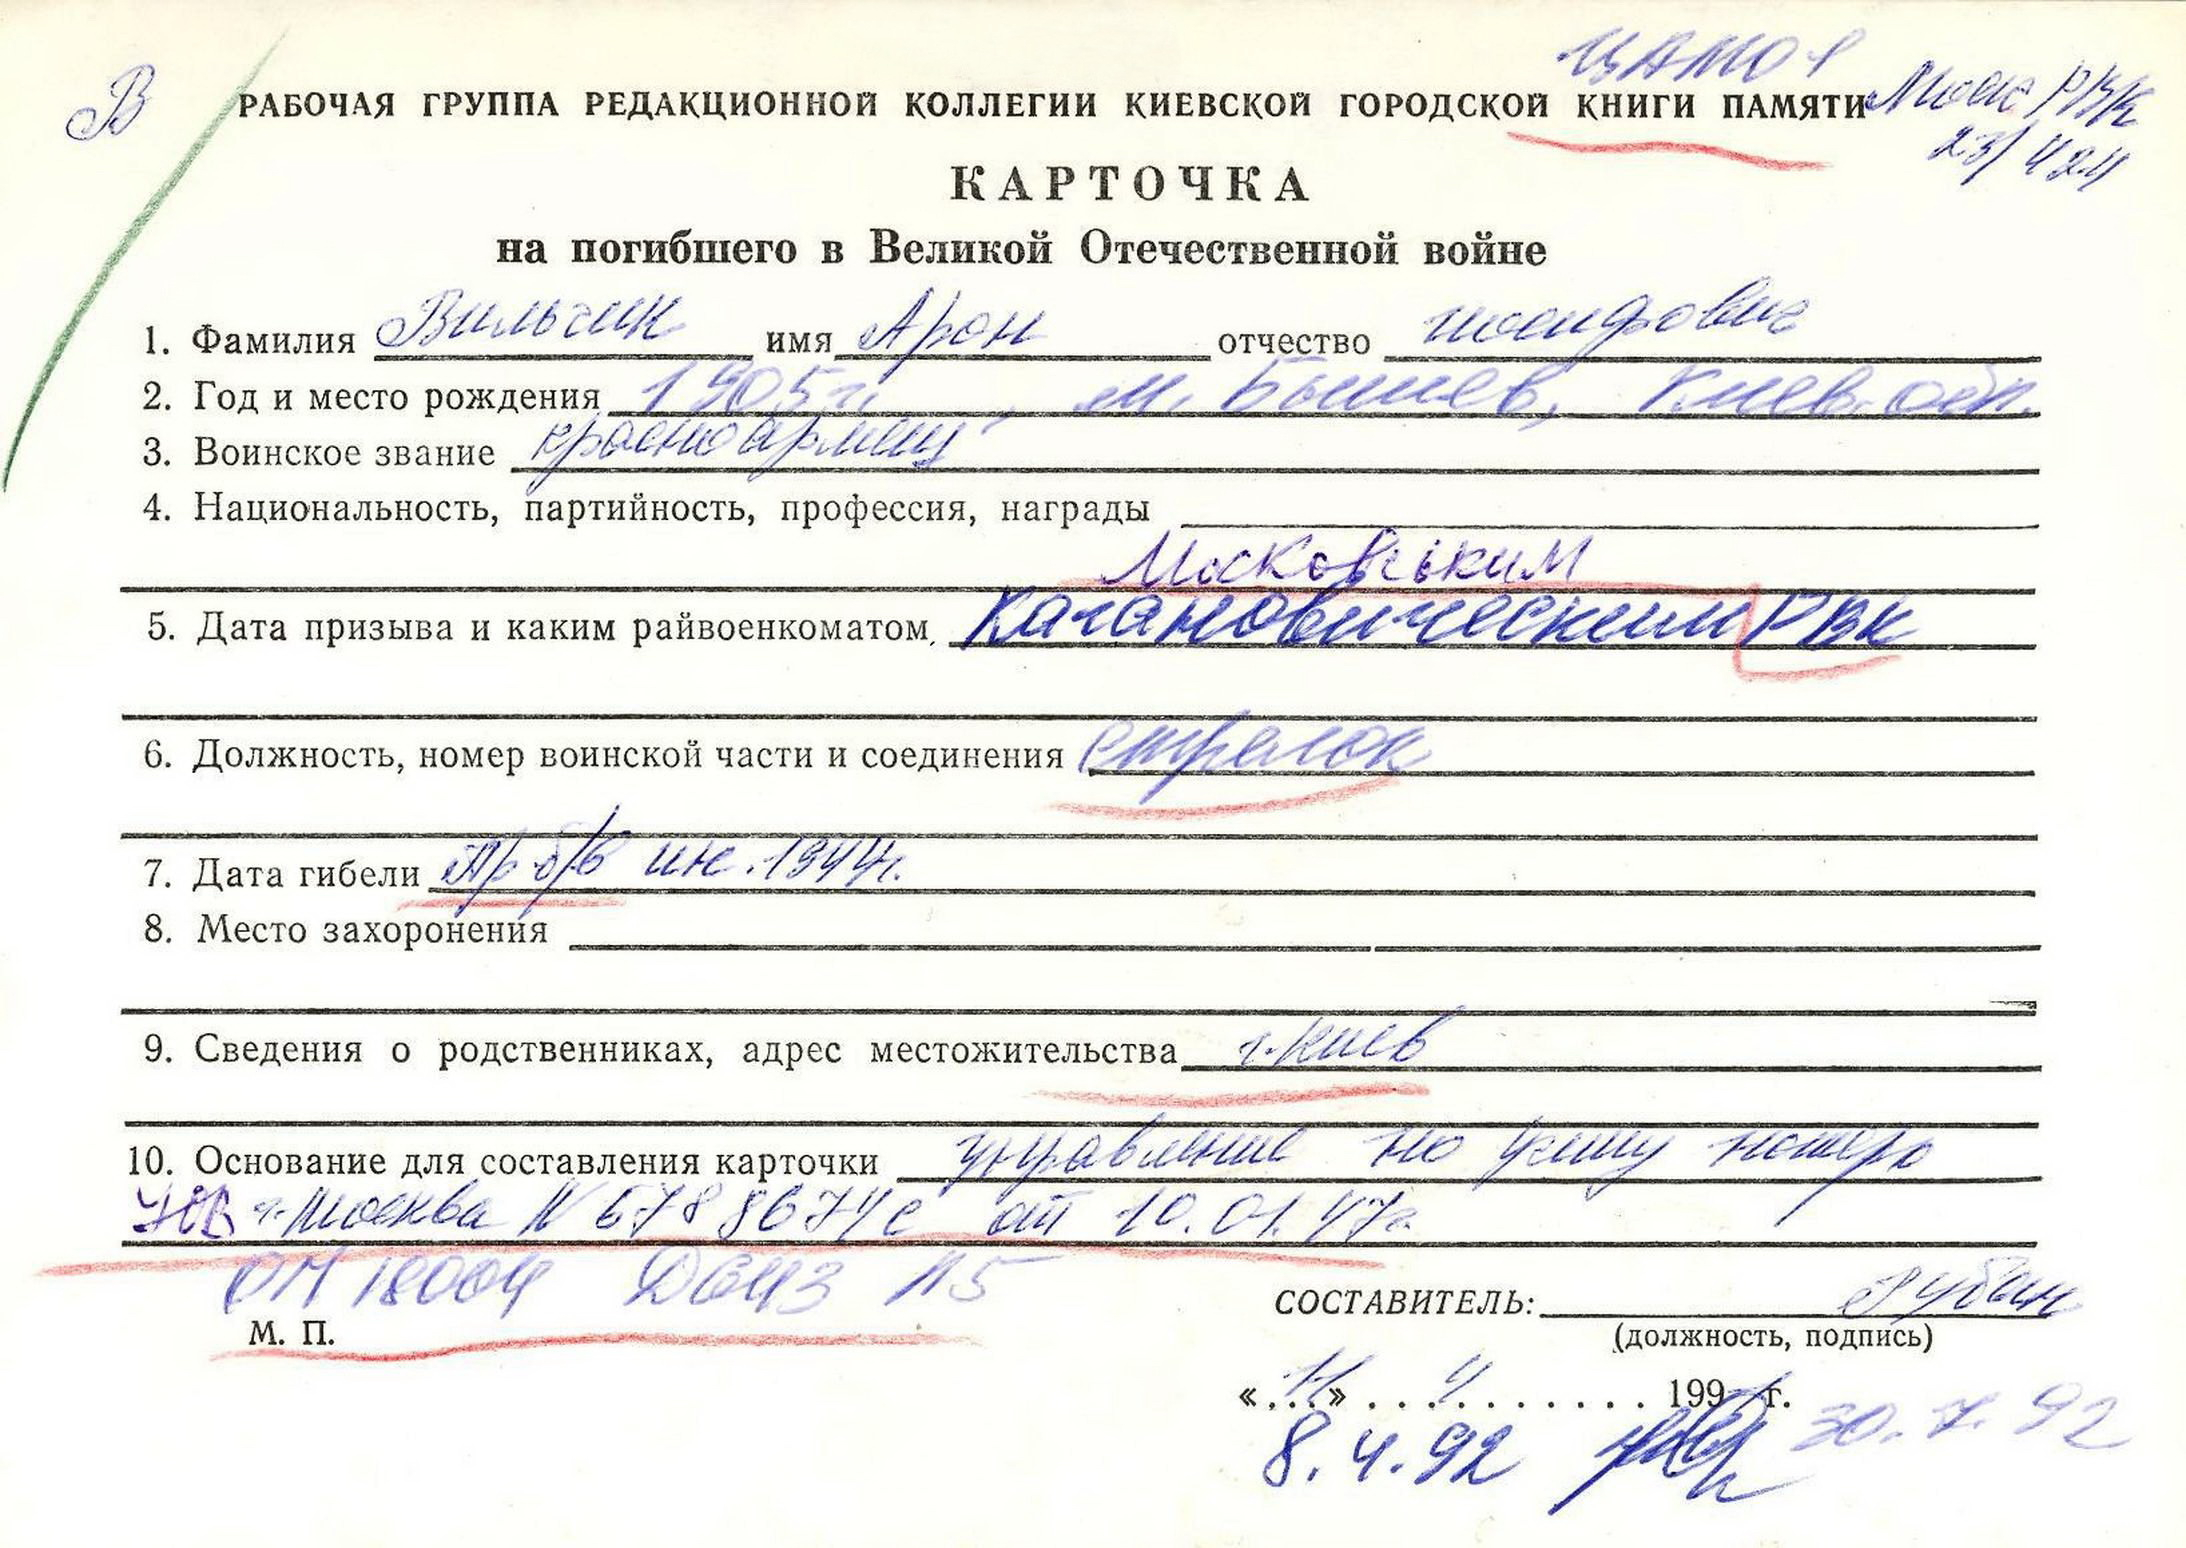 ЦАМО
В РАБОЧАЯ ГРУППА РЕДАКЦИОННОЙ КОЛЛЕГИИ КИЕВСКОЙ ГОРОДСКОЙ КНИГИ ПАМЯТИ Моск РВК
23/424
КАРТОЧКА
на погибшего в Великой Отечественной войне
1. Фамилия Вильчик имя Арон отчество иосифович
2. Год и место рождения 1905г., м. Бышев, Киев. обл.
3. Воинское звание красноармеец
4. Национальность, партийность, профессия, награды
Московським
5. Дата призыва и каким райвоенкоматом Кагановическим РВК
6. Должность, номер воинской части и соединения стрелок
7. Дата гибели Пр б/в 1944г.
8. Место захоронения
9. Сведения о родственниках, адрес местожительства г. Киев
10. Основание для составления карточки управление по учету потерь
г. Москва N от 10.01.47г
ОП 18004 Д 643 Л5
СОСТАВИТЕЛЬ: Рубан
М. П.
(должность, подпись)
«...» 4 199 г.
8.4.92 30.7.92